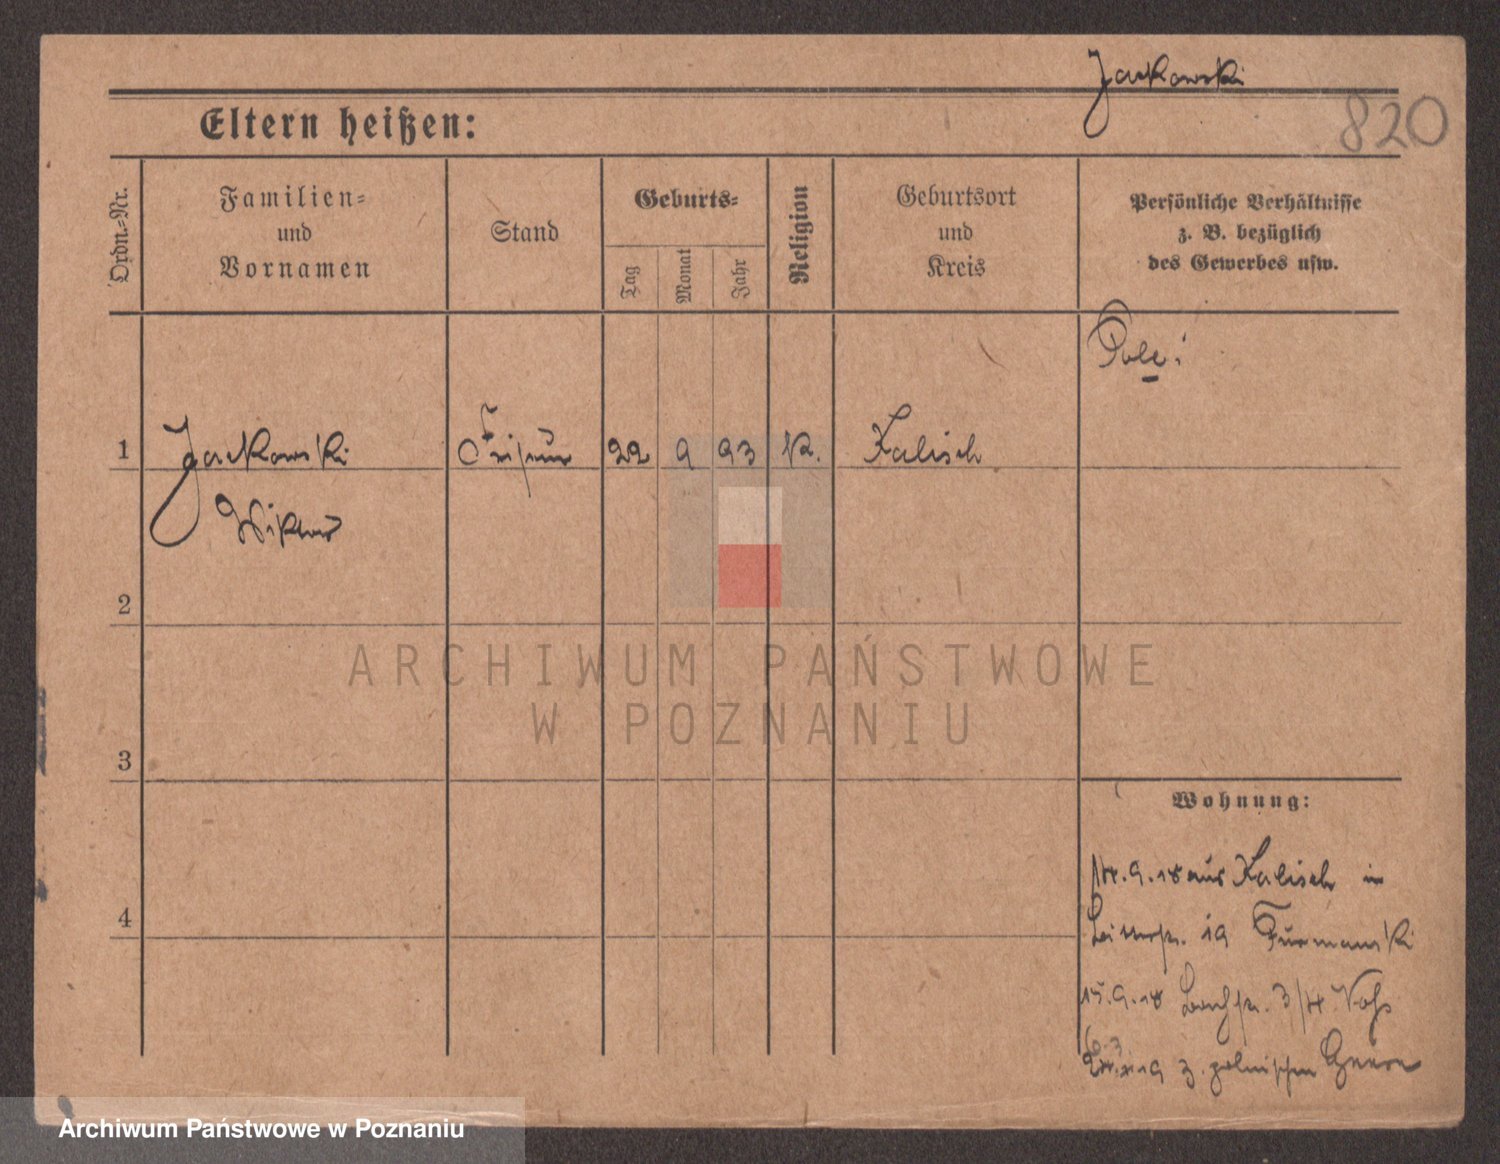 Jackowski
820
Eltern heißen:
Ordn.-Nr.
Familien-
und
Vornamen
Stand
Geburts-
Tag
Monat
Jahr
Religion
Geburtsort
und
Kreis
Persönliche Verhältnisse
z. B. bezüglich
des Gewerbes usw.
Pole!
1 Jackowski Friseur 22 9 93 K. Kalisch
Wiktor
2
3
4
Wohnung:
14.9.18 aus Kalisch in
19 Furmanski
15.9.18 3/4
19 z. polnischen
ARCHIWUM PAŃSTWOWE
W POZNANIU
Archiwum Państwowe w Poznaniu